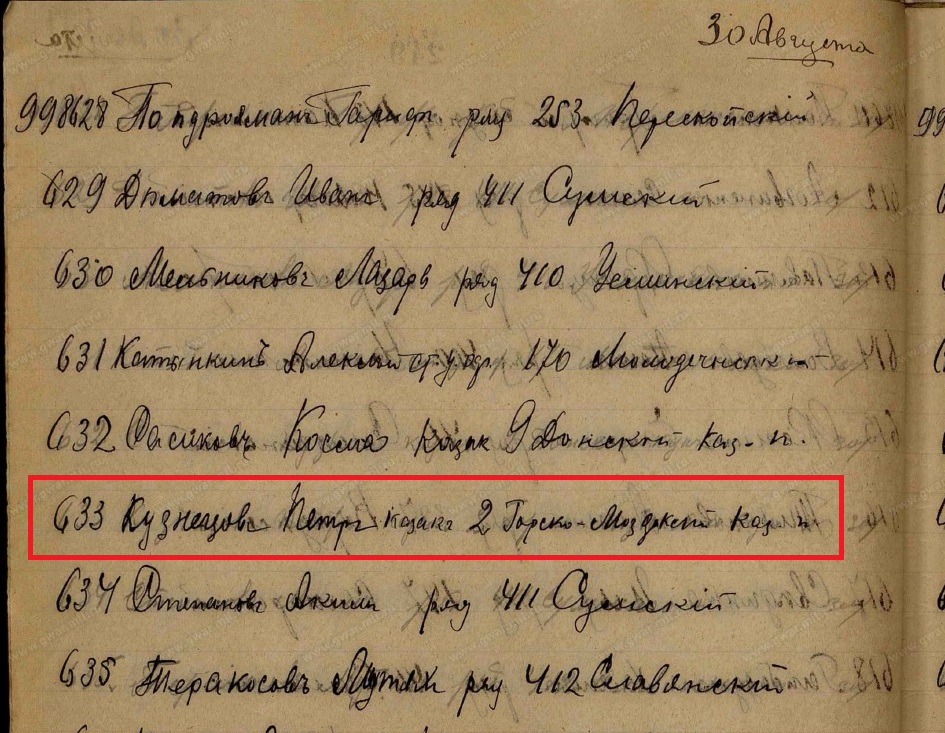 30 Августа
998628 ряд 253. Перекопскій
629 Иванъ ряд 411 Сумскій
630 Мельниковъ Лазарь ряд 410 Усманскій
631 Алексѣй ст. у. оф. 170 Молодечнен
632 Косма казак 9 Донской каз. п.
633 Кузнецовъ Петръ казакъ 2 Горско-Моздокскій каз. п.
634 Степановъ Аким ряд 411 Сумскій
635 Теракосовъ ряд 412 Славянскій